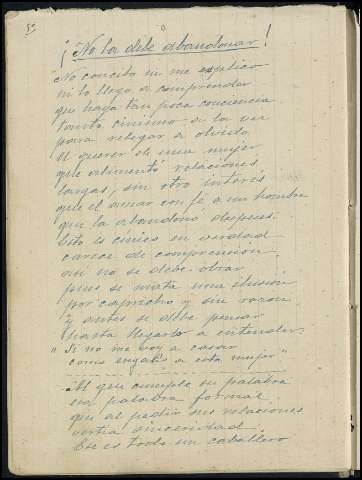 ¡No la debe abandonar!
No concibo ni me explico
ni lo llego a comprender
que haya tan poca conciencia
tanto cinismo a la vez
para relegar a olvido
el querer de una mujer
que alimentó relaciones
largas, sin otro interés
que el amar con fé a un hombre
que la abandona despues.
Esto es cínico en verdad
carece de comprension,
asi no se debe obrar
pues se mata una ilusion
por capricho y sin razon.
y antes se debe pensar
hasta llegarlo a entender.
"Si no me voy a casar
como engaño a esta mujer"
El que cumple su palabra
es palabra formal
que al pedir sus relaciones
vertia sinceridad.
Ese es todo un caballero